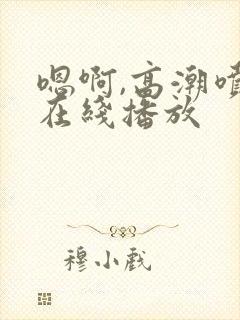 嗯啊,高潮喷
在线播放
穆小戲